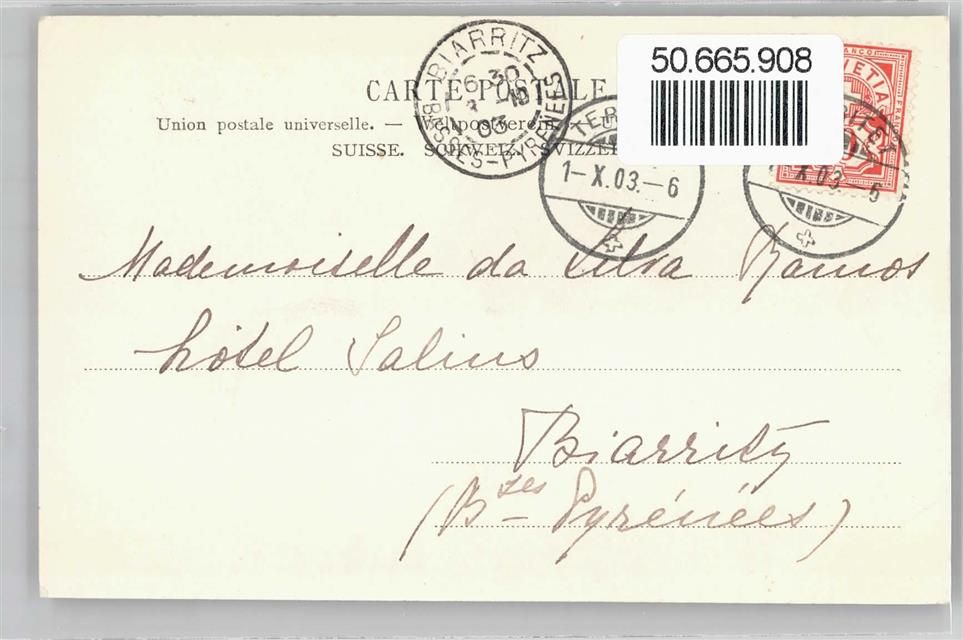 50.665.908
CARTE POSTALE.
Union postale universelle. — Weltpostverein.
SUISSE. SCHWEIZ. SVIZZE
BIARRITZ
6 30
03
BSSES-PYRENEES
TER
1-X.03.-6
X.03.-6
FRANCO
HELVETIA
FRANCO
Mademoiselle da Silva Ramos
hôtel Salins
Biarritz
(Bses Pyrénées)